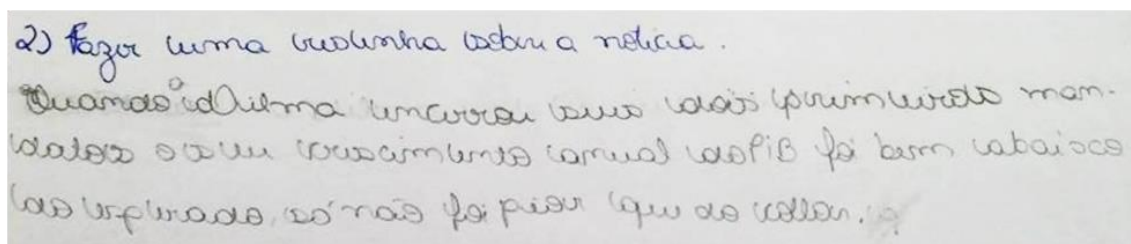 2) Fazer uma resenha sobre a notícia.
Quando a Dilma encerrou seus dois primeiros man-
datos o seu crescimento anual do PIB foi bem abaixo
do esperado, só não foi pior que do collor.